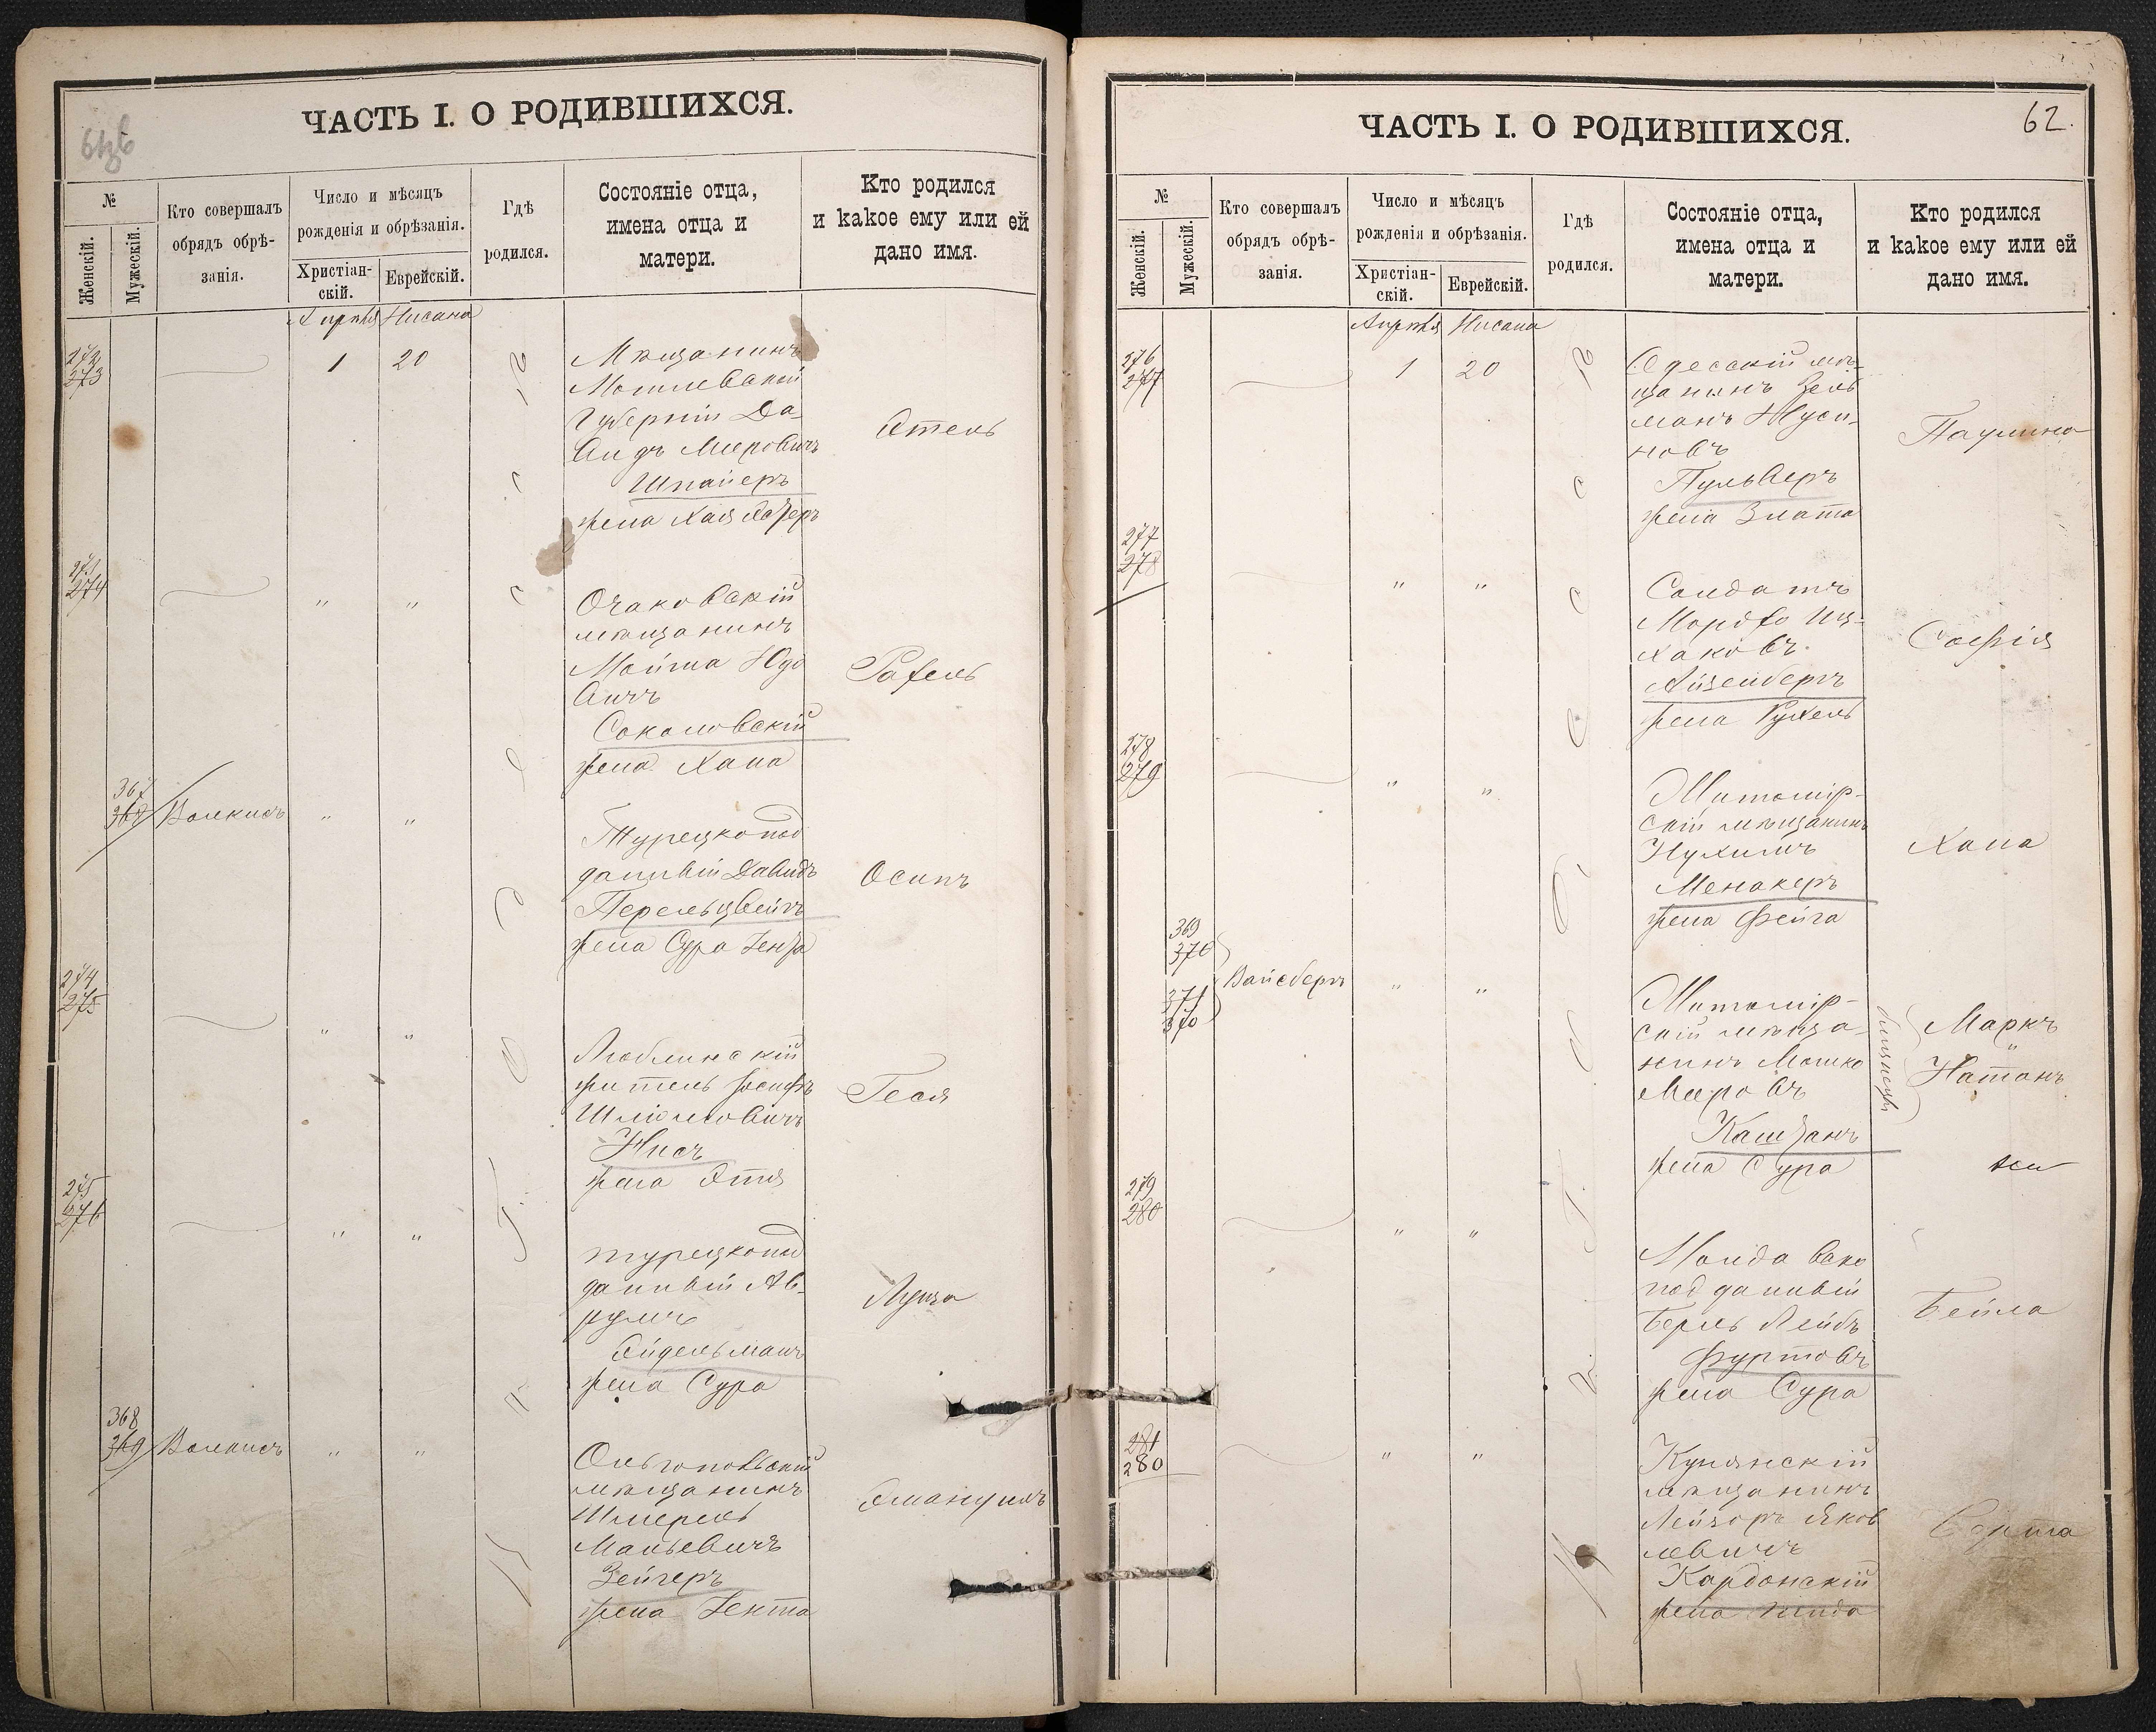 ЧАСТЬ I. О РОДИВШИХСЯ.
№
Женскій.
Мужескій.
Кто совершалъ
обрядъ обрѣ-
занія.
Число и мѣсяцъ
рожденія и обрѣзанія.
Христіан-
скій.
Еврейскій.
Гдѣ
родился.
Состояніе отца,
имена отца и
матери.
Кто родился
и какое ему или ей
дано имя.
Апрѣля Нисана
272
273
1 20
Мѣщанинъ
Могилевской
Губерніи Да
видъ Меровичъ
Шпайеръ
жена Хая
Этель
273
274
" "
Очаковскій
мѣщанинъ
Мойша Юдо
вичъ
Соколовскій
жена Хана
Рахель
367
368
Волкисъ " "
Турецкопод
данный Давидъ
Перельцвейгъ
жена Сура Генза
Осипъ
274
275
" "
Люблинскій
житель Іосифъ
Шліомовичъ
Нисъ
жена Этля
Геся
275
276
" "
турецкопод
данный Ав-
румъ
Эйдельманъ
жена Сура
Луиза
368
369
Волкисъ " "
Ольгопольскій
мѣщанинъ
Шмерель
Маньевичъ
Зейгеръ
жена Гента
Эмануилъ
ЧАСТЬ I. О РОДИВШИХСЯ.
62.
№
Женскій.
Мужескій.
Кто совершалъ
обрядъ обрѣ-
занія.
Число и мѣсяцъ
рожденія и обрѣзанія.
Христіан-
скій.
Еврейскій.
Гдѣ
родился.
Состояніе отца,
имена отца и
матери.
Кто родился
и какое ему или ей
дано имя.
Апрѣля Нисана
276
277
1 20
Одесскій мѣ-
щанинъ Зель
манъ Нуси-
новъ
Пульверъ
жена Злата
Паулина
277
278
" "
Солдатъ
Мордко Иц-
хаковъ
Айзенбергъ
жена Рухель
Софія
278
279
" "
Житомір-
скій мѣщанинъ
Нухимъ
Менакеръ
жена Фейга
Хана
369
370
371
370
Вайсбергъ " "
Житомір-
скій мѣща-
нинъ Мошко
Меровъ
Каштанъ
жена Сура
близнецы
Маркъ
"
Натанъ
279
280
" "
Молдавско
подданный
Берль Лейбъ
Фуртовъ
жена Сура
Бейла
281
280
" "
Купянскій
мѣщанинъ
Лейзоръ Яков
левичъ
Кардонскій
жена
Берта